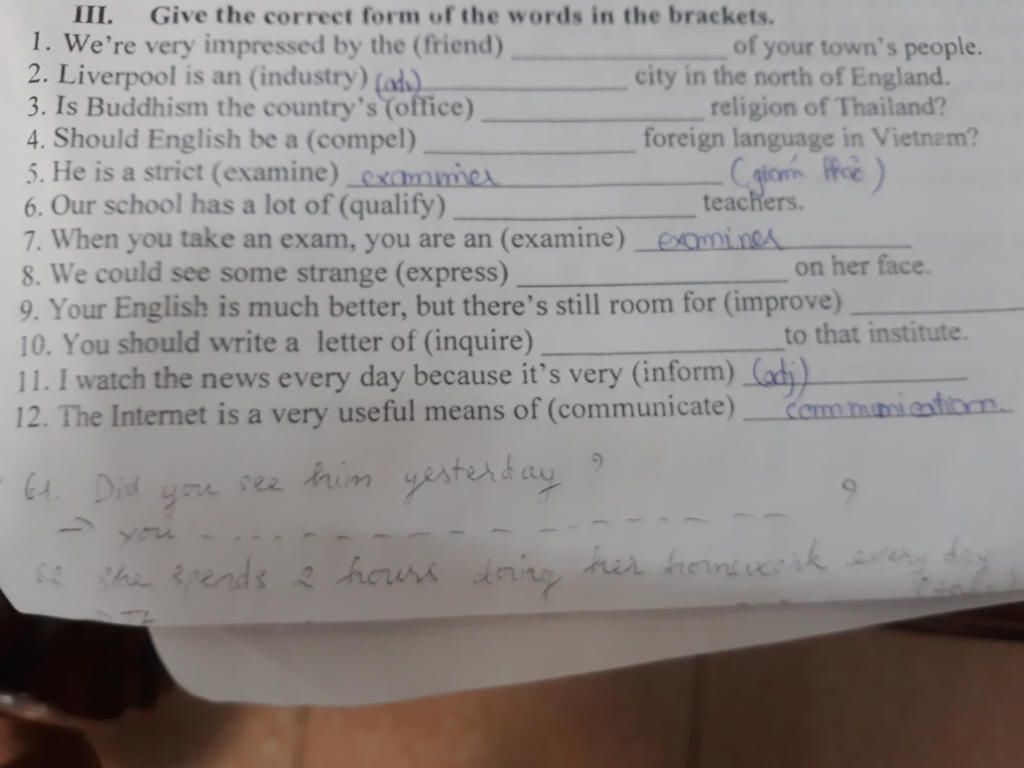 III. Give the correct form of the words in the brackets.
1. We're very impressed by the (friend) ____________ of your town's people.
2. Liverpool is an (industry) (adj) ____________ city in the north of England.
3. Is Buddhism the country's (office) ____________ religion of Thailand?
4. Should English be a (compel) ____________ foreign language in Vietnam?
5. He is a strict (examine) examiner ____________ (giám khảo)
6. Our school has a lot of (qualify) ____________ teachers.
7. When you take an exam, you are an (examine) examinee
8. We could see some strange (express) ____________ on her face.
9. Your English is much better, but there's still room for (improve) ____________
10. You should write a letter of (inquire) ____________ to that institute.
11. I watch the news every day because it's very (inform) (adj) ____________
12. The Internet is a very useful means of (communicate) communication.
61. Did you see him yesterday ?
→ you - - - - - - - - - - - - - - - ?
62 She spends 2 hours doing her homework every day